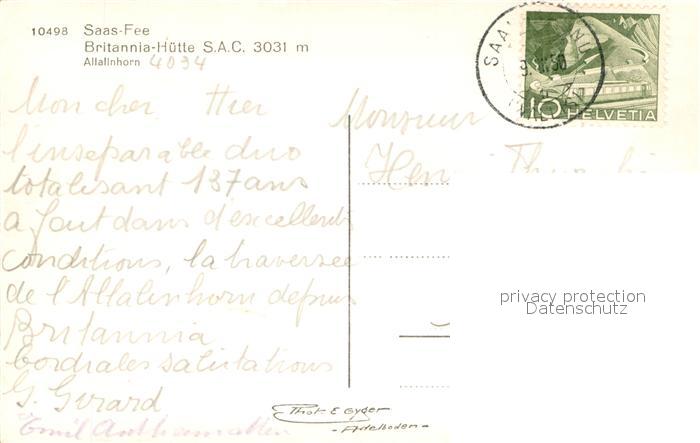 10498 Saas-Fee
Britannia-Hütte S.A.C. 3031 m
Allalinhorn 4034
Mon cher Hier
l'inseparable duo
totalisant 137 ans
a fait dans d'excellents
conditions, la traversée
de l'Allalinhorn depuis
Britannia
Cordiales salutations
G. Girard
Emil Anthamatten
SAA
50
10 HELVETIA
Monsieur
privacy protection
Datenschutz
Phot. E Gyger
-Adelboden-